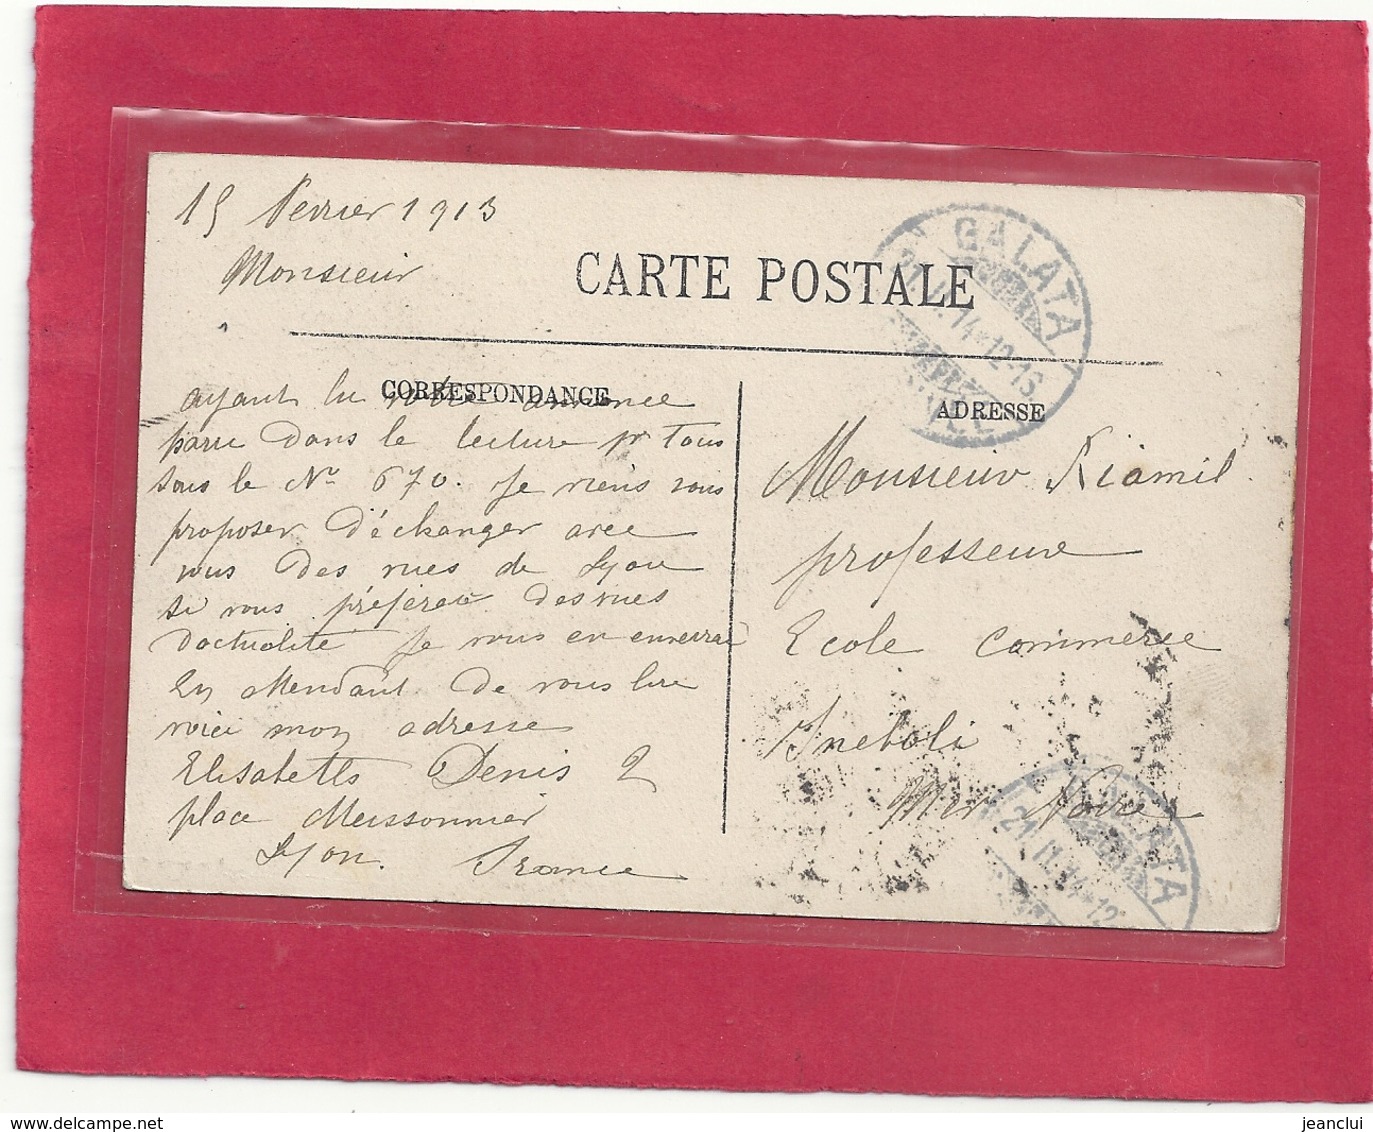 15 Fevrier 1913
Monsieur
CARTE POSTALE
CORRESPONDANCE
ayant lu votre annonce
parue dans le lecture pr Tous
sous le No 670. Je viens vous
proposer d'échanger avec
vous des vues de Lyon
si vous préférez des vues
d'actualité Je vous en enverrai
En attendant de vous lire
voici mon adresse
Elisabeth Denis 2
place Meissonnier
Lyon. France
ADRESSE
Monsieur Kiamil
professeur
Ecole commerce
Ineboli
Mer Noire
GALATA
21.II.14*12-16
GALATA
21.II.14*12
www.delcampe.net
jeanclui